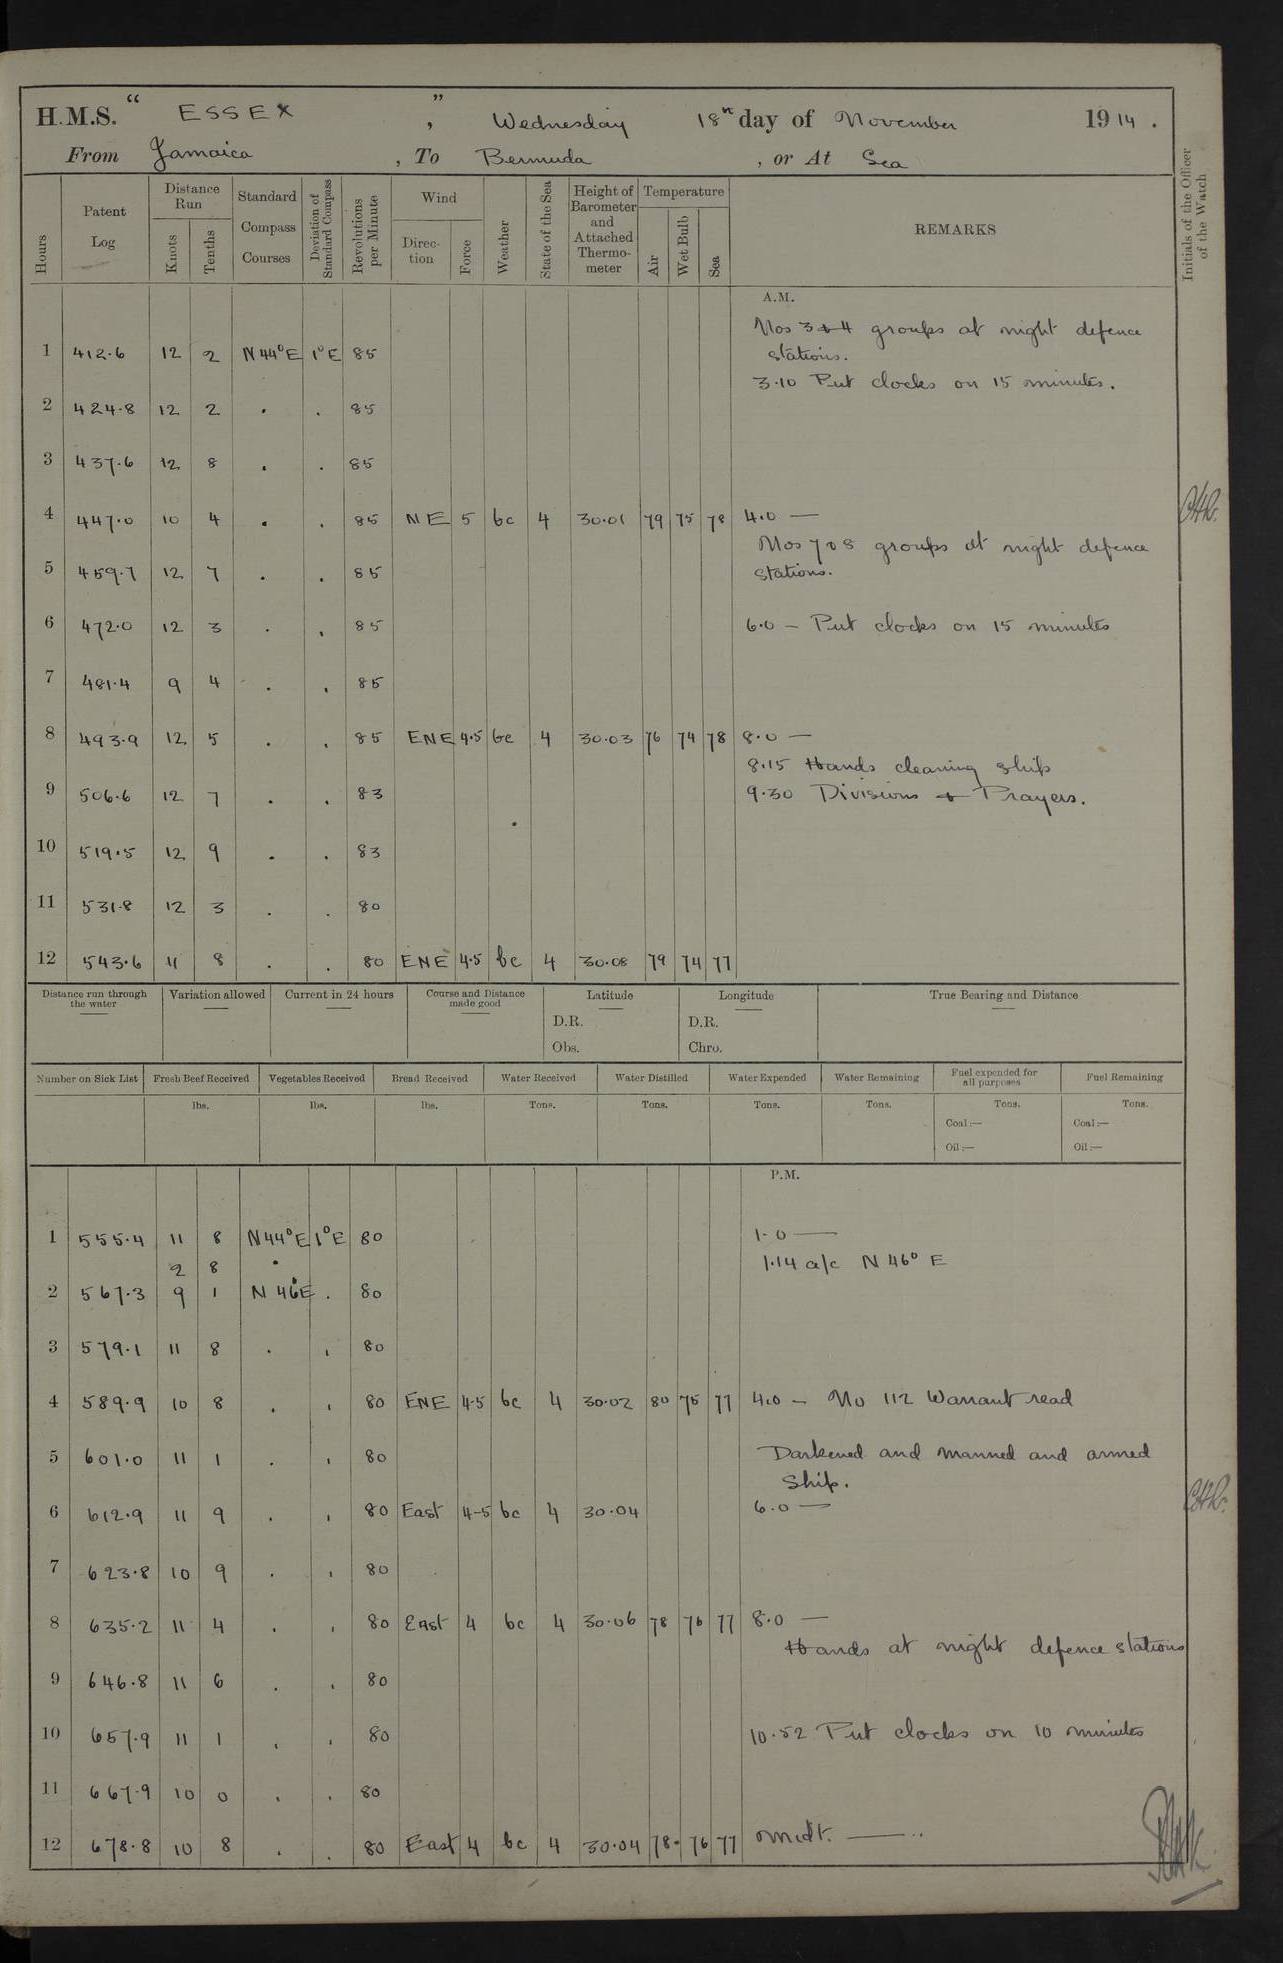 H.M.S. " ESSEX ", Wednesday 18th day of November 1914.
From Jamaica, To Bermuda, or At Sea
Hours Patent Log Distance Run Knots Tenths Standard Compass Courses Deviation of Standard Compass Revolutions per Minute Wind Direction Force Weather State of the Sea Height of Barometer and Attached Thermometer Temperature Air Wet Bulb Sea REMARKS Initials of the Officer of the Watch
A.M.
Nos 3 & 4 groups at night defence
1 412.6 12 2 N 44° E 1° E 85 stations.
3.10 Put clocks on 15 minutes.
2 424.8 12 2 . . 85
3 437.6 12 8 . . 85
4 447.0 10 4 . . 85 NE 5 bc 4 30.01 79 75 78 4.0 —
Nos 7 & 8 groups at night defence
5 459.7 12 7 . . 85 stations.
6 472.0 12 3 . . 85 6.0 – Put clocks on 15 minutes
7 481.4 9 4 . . 85
8 493.9 12 5 . . 85 ENE 4.5 bc 4 30.03 76 74 78 8.0 —
8.15 Hands cleaning ship
9 506.6 12 7 . . 83 9.30 Divisions & Prayers.
10 519.5 12 9 . . 83
11 531.8 12 3 . . 80
12 543.6 11 8 . . 80 ENE 4.5 bc 4 30.08 79 74 77
Distance run through the water Variation allowed Current in 24 hours Course and Distance made good Latitude Longitude True Bearing and Distance
D.R. D.R.
Obs. Chro.
Number on Sick List Fresh Beef Received Vegetables Received Bread Received Water Received Water Distilled Water Expended Water Remaining Fuel expended for all purposes Fuel Remaining
lbs. lbs. lbs. Tons. Tons. Tons. Tons. Tons. Tons.
Coal :— Coal :—
Oil :— Oil :—
P.M.
1 555.4 11 8 N 44° E 1° E 80 1.0 —
2 8 . 1.14 a/c N 46° E
2 567.3 9 1 N 46° E . 80
3 579.1 11 8 . . 80
4 589.9 10 8 . . 80 ENE 4-5 bc 4 30.02 80 75 77 4.0 – No 112 Warrant read
5 601.0 11 1 . . 80 Darkened and manned and armed
Ship.
6 612.9 11 9 . . 80 East 4-5 bc 4 30.04 6.0 —
7 623.8 10 9 . . 80
8 635.2 11 4 . . 80 East 4 bc 4 30.06 78 76 77 8.0 —
Hands at night defence stations
9 646.8 11 6 . . 80
10 657.9 11 1 . . 80 10.52 Put clocks on 10 minutes
11 667.9 10 0 . . 80
12 678.8 10 8 . . 80 East 4 bc 4 30.04 78 76 77 midt. —